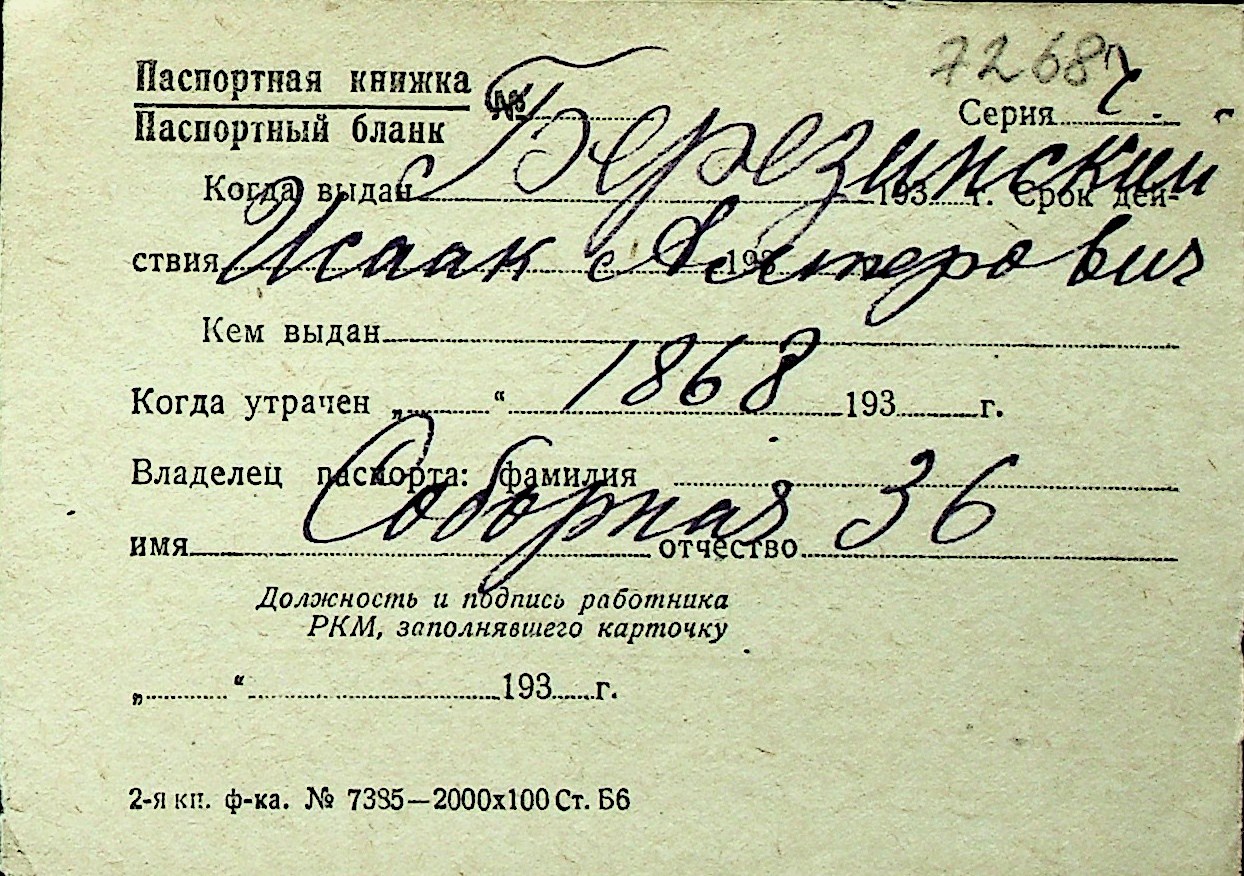 7268
Паспортная книжка
Паспортный бланк
№
Серия
Березинский
Когда выдан 193 г. Срок дей-
Исаак Алтерович
ствия с 193
Кем выдан
1868
Когда утрачен „ “ 193 г.
Владелец паспорта: фамилия
Соборная 36
имя отчество
Должность и подпись работника
РКМ, заполнявшего карточку
„ “ 193 г.
2-я кп. ф-ка. № 7385—2000х100 Ст. Б6